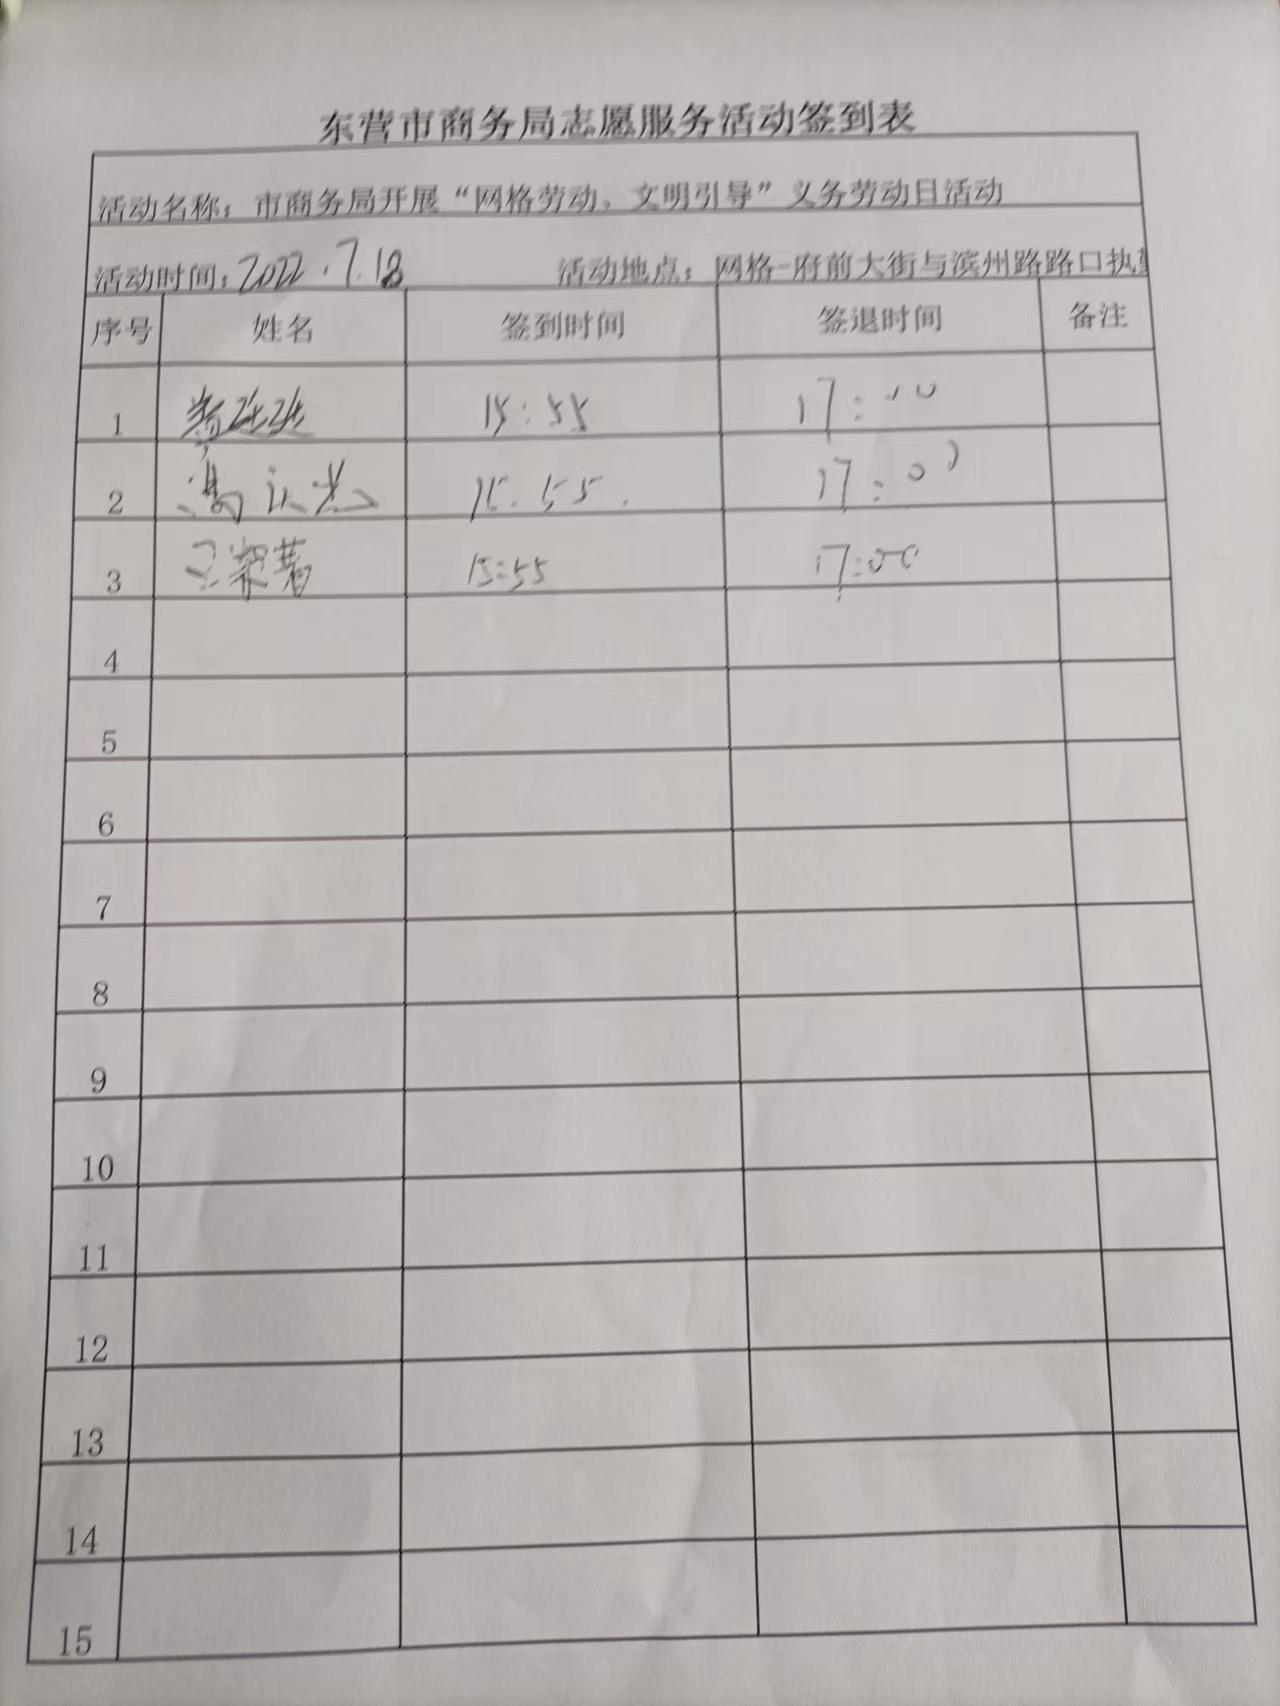 东营市商务局志愿服务活动签到表
活动名称：市商务局开展“网格劳动、文明引导”义务劳动日活动
活动时间：2022.7.18 活动地点：网格-府前大街与滨州路路口执
序号 姓名 签到时间 签退时间 备注
1 15:55 17:00
2 15.55. 17:00
3 15:55 17:00
4
5
6
7
8
9
10
11
12
13
14
15